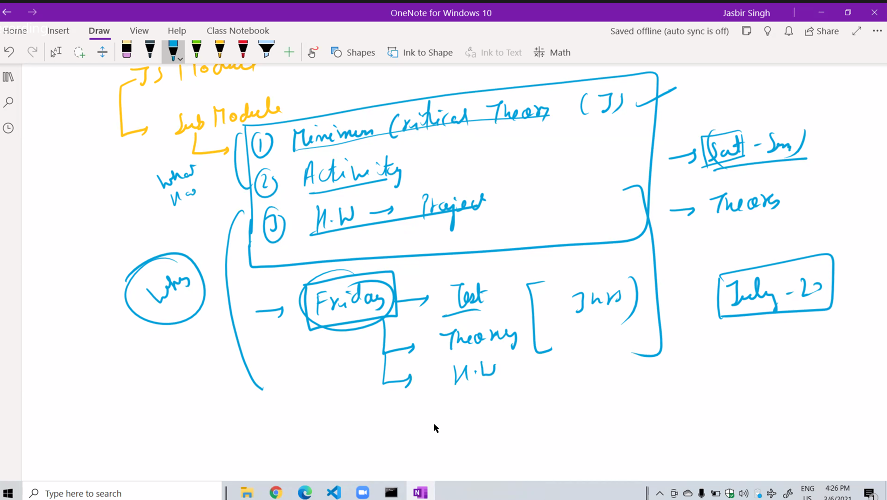 OneNote for Windows 10
Jasbir Singh
Home Insert Draw View Help Class Notebook
Saved offline (auto sync is off)
Share
Shapes Ink to Shape Ink to Text Math
JS Module
Sub Module
① Minimum Critical Theory (J) → (Sat - Sun)
What
② Activity
③ H.W → Project → Theory
Why
→ Friday → Test [ 3hrs ) July - 20
→ Theory
→ H.W
Type here to search
ENG 4:26 PM
US 3/6/2021